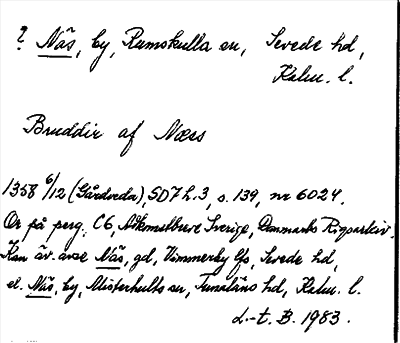 ? Näs, by, Rumskulla sn, Sevede hd,
Kalm. l.
Bruddir af Næs
1358 6/12 (Gårdveda), SD7 h.3, s. 139, nr 6024.
Or på perg. C6, Avkomulbreve Sverige, Danmarks Rigsarkiv.
Kan äv. avse Näs, gd, Vimmerby lfs, Sevede hd,
el. Näs, by, Misterhults sn, Tunaläns hd, Kalm. l.
L.-t. B. 1983.